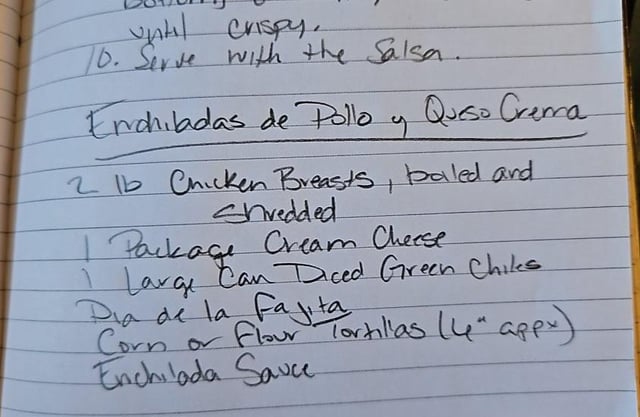 until crispy.
10. Serve with the Salsa.
Enchiladas de Pollo y Queso Crema
2 lb Chicken Breasts, boiled and
shredded
1 Package Cream Cheese
1 Large Can Diced Green Chiles
Dia de la Fajita
Corn or Flour Tortillas (4" appx)
Enchilada Sauce